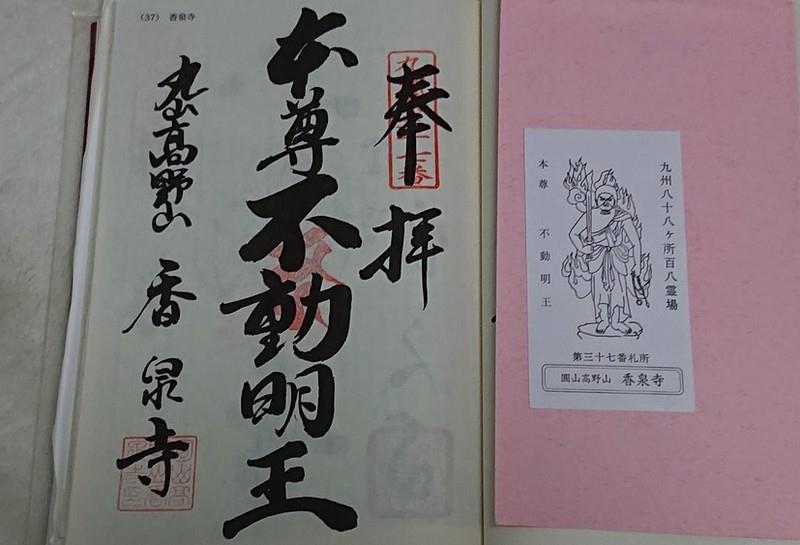 (37) 香泉寺
奉拝
本尊不動明王
丸山高野山 香泉寺
九州八十八ヶ所百八霊場
本尊 不動明王
第三十七番札所
圓山高野山 香泉寺